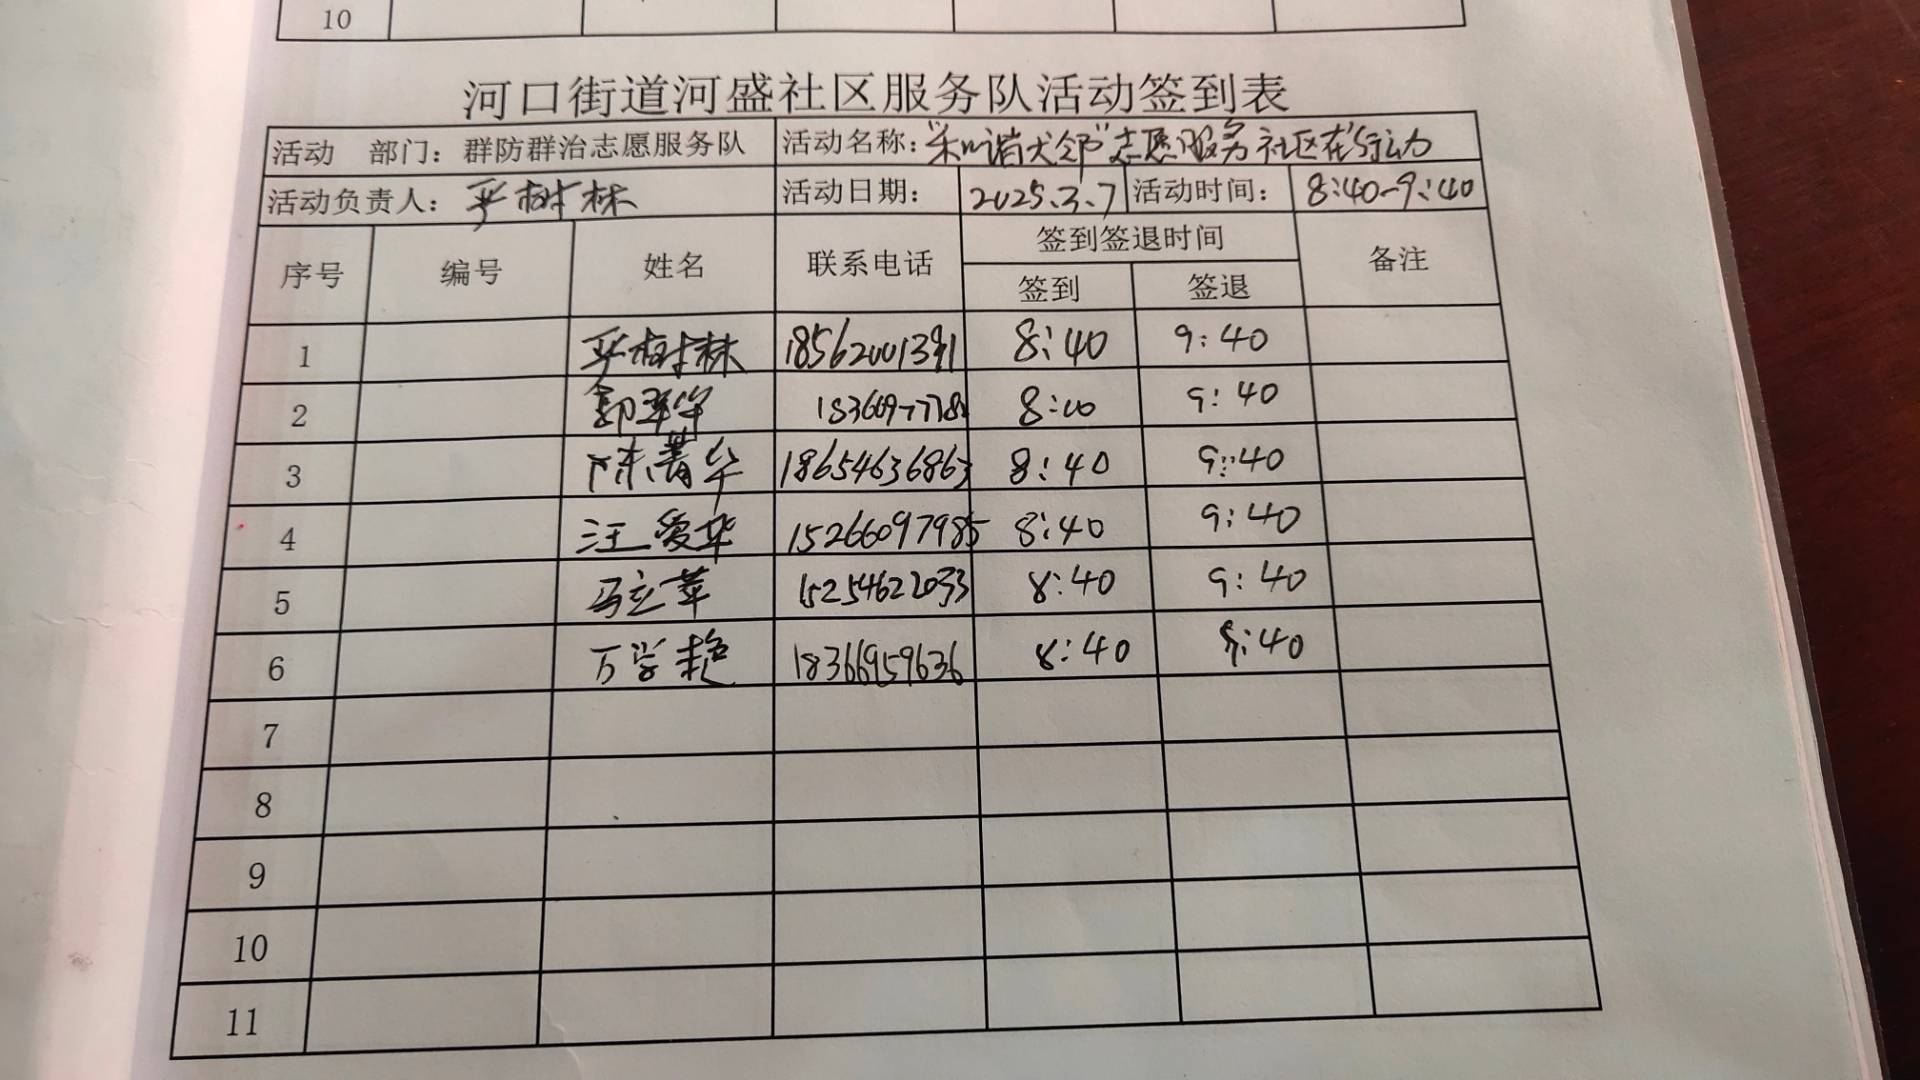 10
河口街道河盛社区服务队活动签到表
活动 部门：群防群治志愿服务队 活动名称：志愿服务社区在行动
活动负责人：树林 活动日期：2025.3.7 活动时间：8:40-9:40
序号 编号 姓名 联系电话 签到签退时间 备注
签到 签退
1 树林 18562001391 8:40 9:40
2 郭翠华 8:40 9:40
3 陈菁华 18654636863 8:40 9:40
4 汪爱华 15266097985 8:40 9:40
5 马立苹 15254622033 8:40 9:40
6 万学艳 18366959636 8:40 9:40
7
8
9
10
11